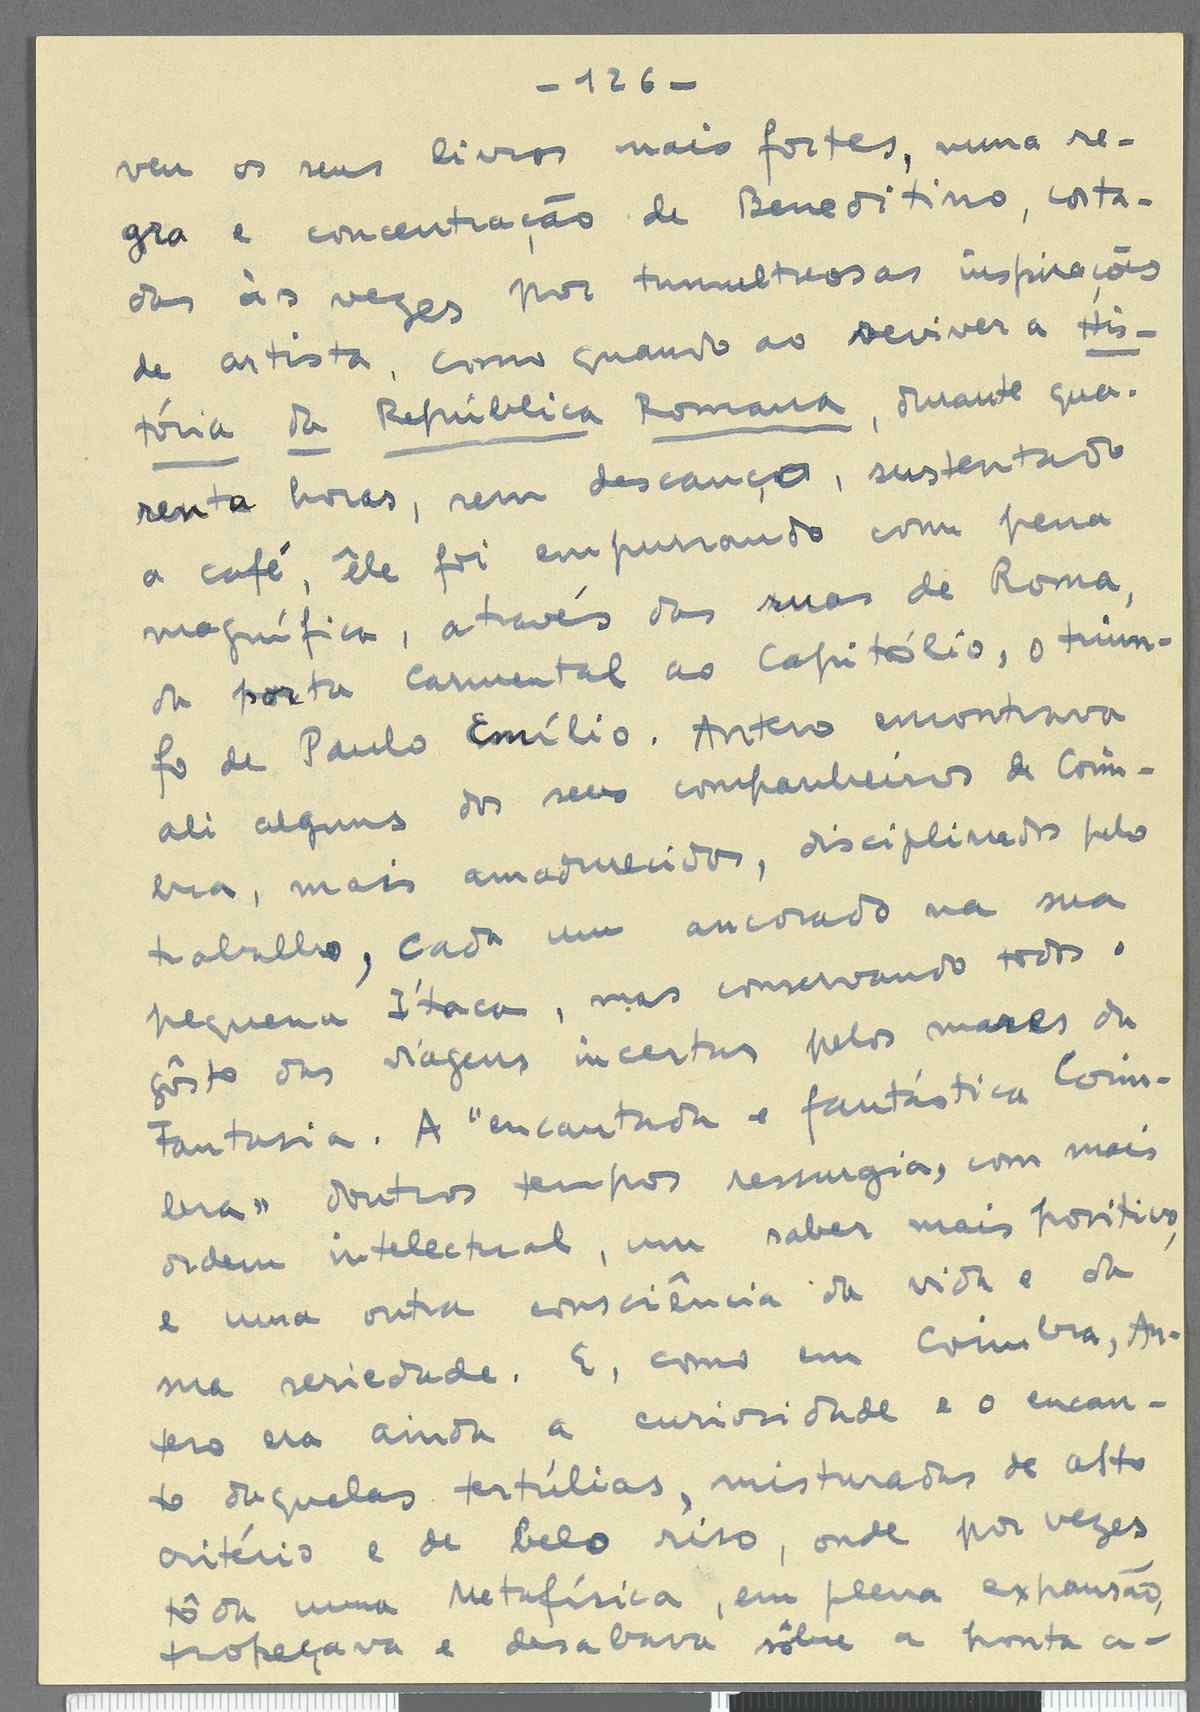 - 126 -
veu os seus livros mais fortes, numa re-
gra e concentração de Beneditino, corta-
das às vezes por tumultuosas inspirações
de artista, como quando ao reviver a His-
tória da República Romana, durante qua-
renta horas, sem descanço, sustentado
a café, êle foi empurrando com pena
magnífica, através das ruas de Roma,
da porta Carmental ao Capitólio, o triun-
fo de Paulo Emílio. Antero encontrava
ali alguns dos seus companheiros de Coim-
bra, mais amadurecidos, disciplinados pelo
trabalho, cada um ancorado na sua
pequena Ítaca, mas conservando todos o
gôsto das viagens incertas pelos mares da
Fantasia. A "encantada e fantástica Coim-
bra" doutros tempos ressurgia, com mais
ordem intelectual, um saber mais positivo,
e uma outra consciência da vida e da
sua seriedade. E, como em Coimbra, An-
tero era ainda a curiosidade e o encan-
to daquelas tertúlias, misturadas de alto
critério e de belo riso, onde por vezes
tôda uma Metafísica, em plena expansão,
tropeçava e desabava sôbre a pronta a-